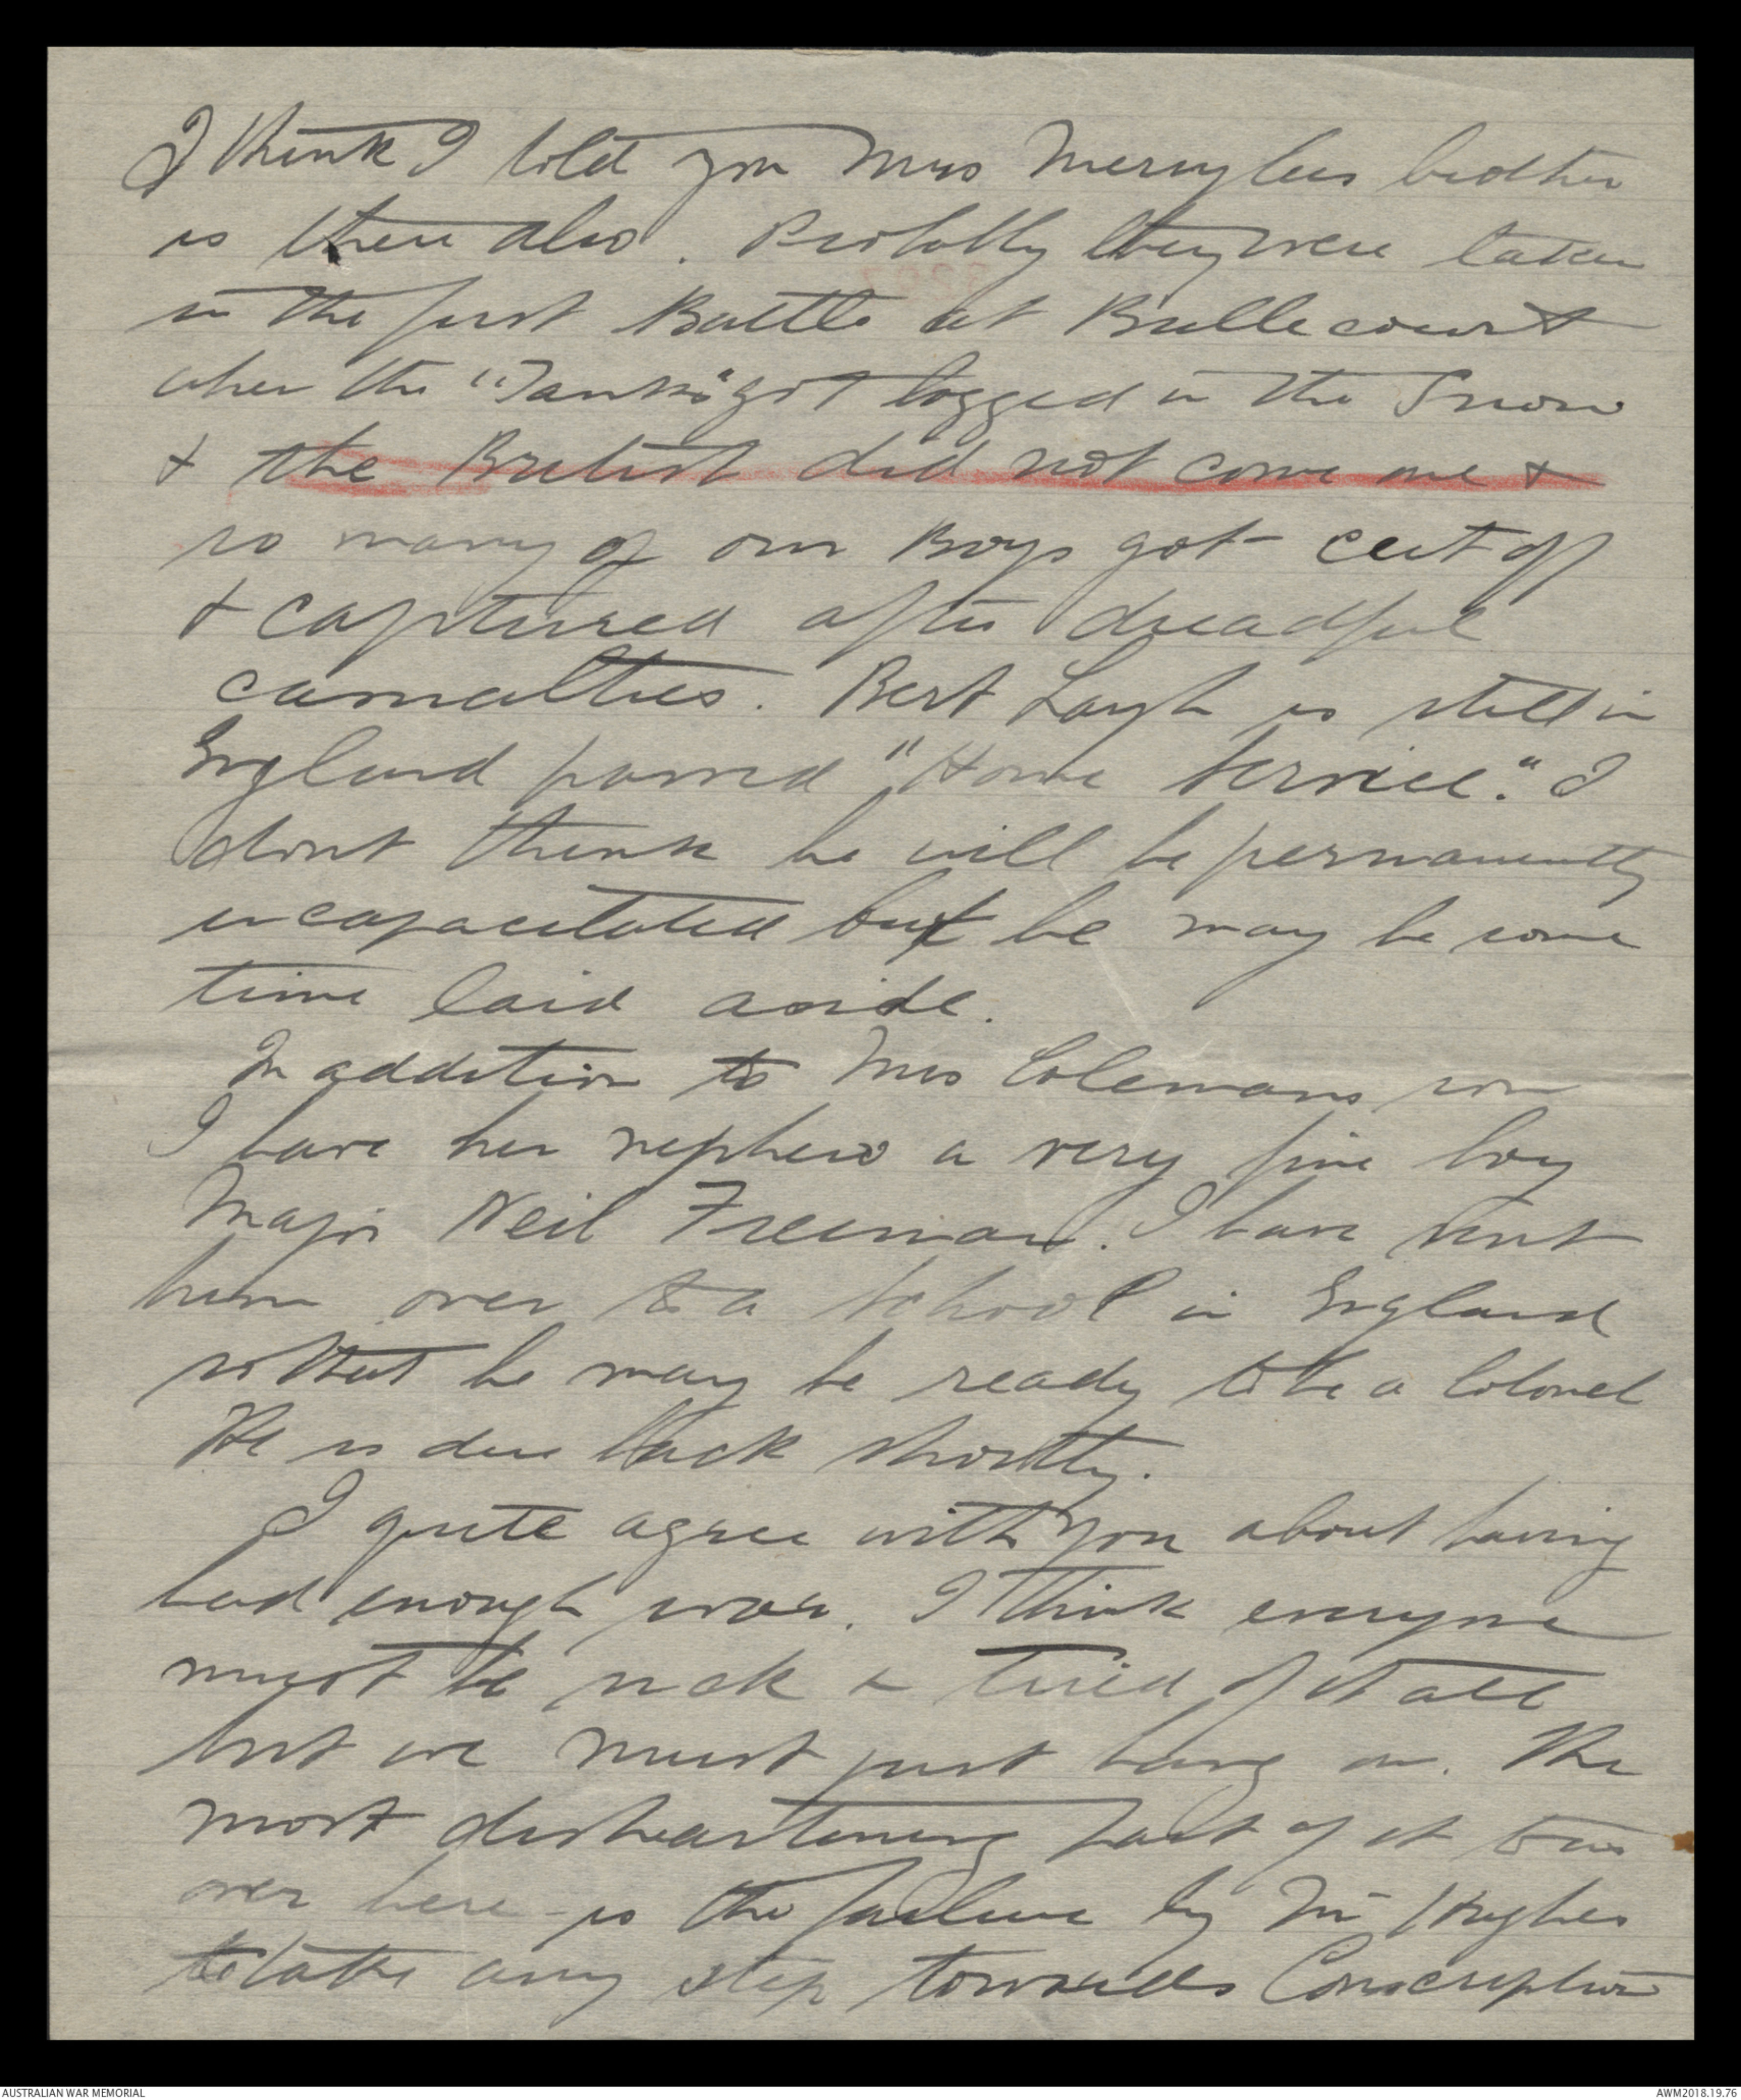 I think I told you Mrs Merrylees brother
is there also. Probably they were taken
in the first Battle at Bullecourt
when the "Tanks" got bogged in the Snow
& the British did not come on &
so many of our Boys got cut off
& captured after dreadful
casualties. Bert Layh is still in
England passed "Home Service." I
dont think he will be permanently
incapacitated but he may be some
time laid aside.
In addition to Mrs Colemans son
I have her nephew a very fine boy
Major Neil Freeman. I have sent
him over to a School in England
so that he may be ready to be a Colonel
He is due back shortly.
I quite agree with you about having
had enough war. I think everyone
must be sick & tired of it all
but we must just hang on. The
most disheartening part of it to us
over here is the failure by Mr Hughes
to take any step towards Conscription
AUSTRALIAN WAR MEMORIAL
AWM2018.19.76